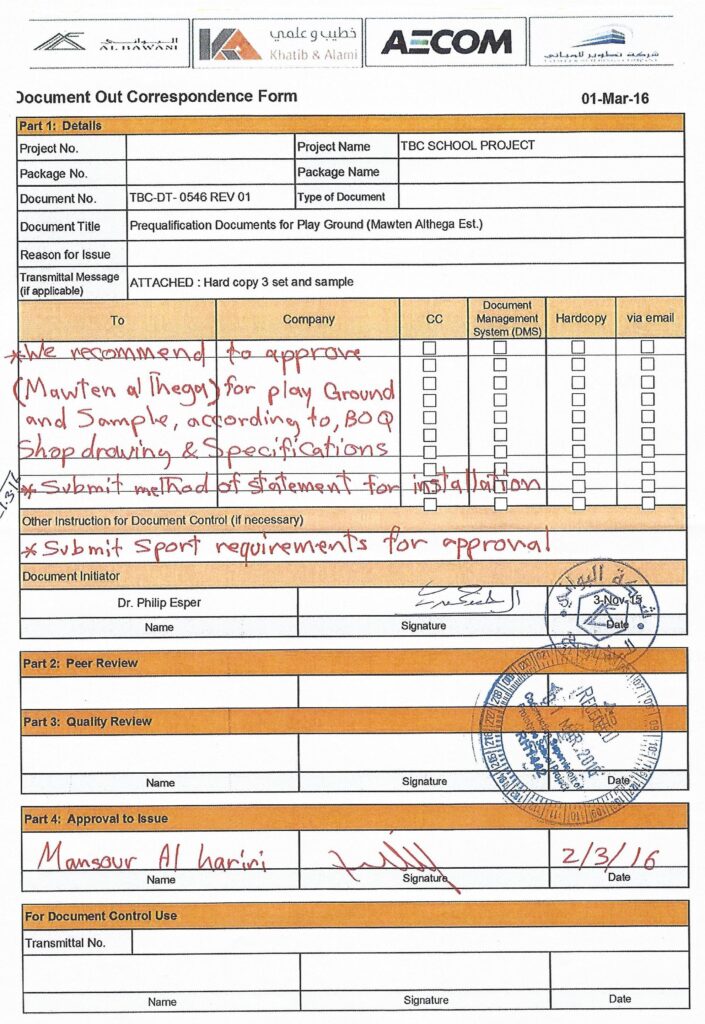 AL BAWANI
خطيب و علمي
Khatib & Alami
AECOM
شركة تطوير المباني
Document Out Correspondence Form
01-Mar-16
Part 1: Details
Project No. Project Name TBC SCHOOL PROJECT
Package No. Package Name
Document No. TBC-DT- 0546 REV 01 Type of Document
Document Title Prequalification Documents for Play Ground (Mawten Althega Est.)
Reason for Issue
Transmittal Message
(if applicable) ATTACHED : Hard copy 3 set and sample
To Company CC Document Management System (DMS) Hardcopy via email
* We recommend to approve
(Mawten al Thega) for play Ground
and Sample, according to, BOQ
Shop drawing & Specifications
* Submit method of statement for installation
Other Instruction for Document Control (if necessary)
* Submit Sport requirements for approval
Document Initiator
Dr. Philip Esper 3-Nov-15
Name Signature Date
شركة البواني
Part 2: Peer Review
Part 3: Quality Review
RECEIVED
MAR 2016
Construction Supervision of
Project
Name Signature Date
Part 4: Approval to Issue
Mansour Al hariri 2/3/16
Name Signature Date
For Document Control Use
Transmittal No.
Name Signature Date